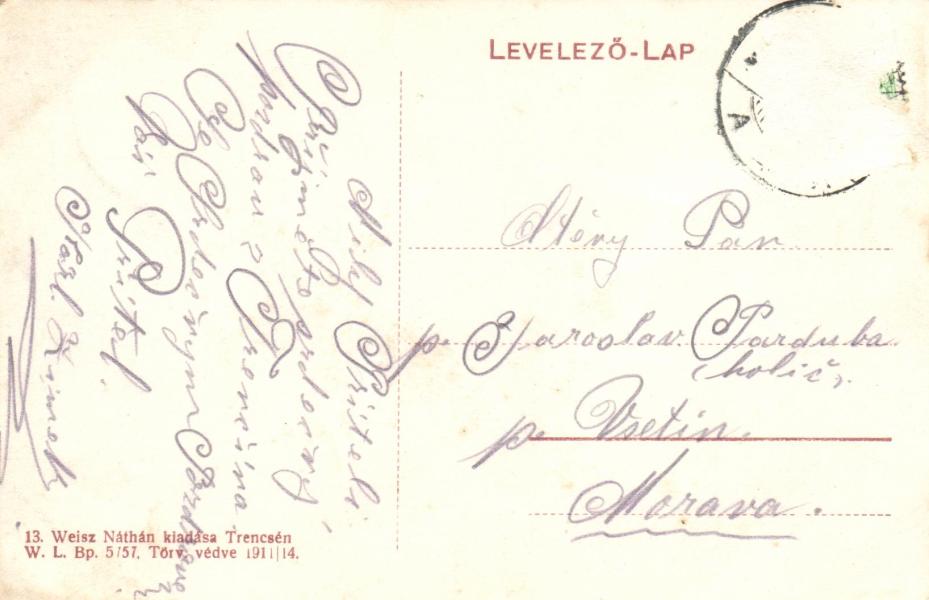 LEVELEZŐ-LAP
A
Milý Příteli
Přijměte srdečný
pozdrav z Trenčína
Se Srdečným Pozdravem
Váš Přítel.
Karl Zimek
Ctěný Pán
p. Jaroslav Parduba
(holič).
p. Vsetín.
Morava.
13. Weisz Náthán kiadása Trencsén
W. L. Bp. 5/57. Törv. védve 1911|14.